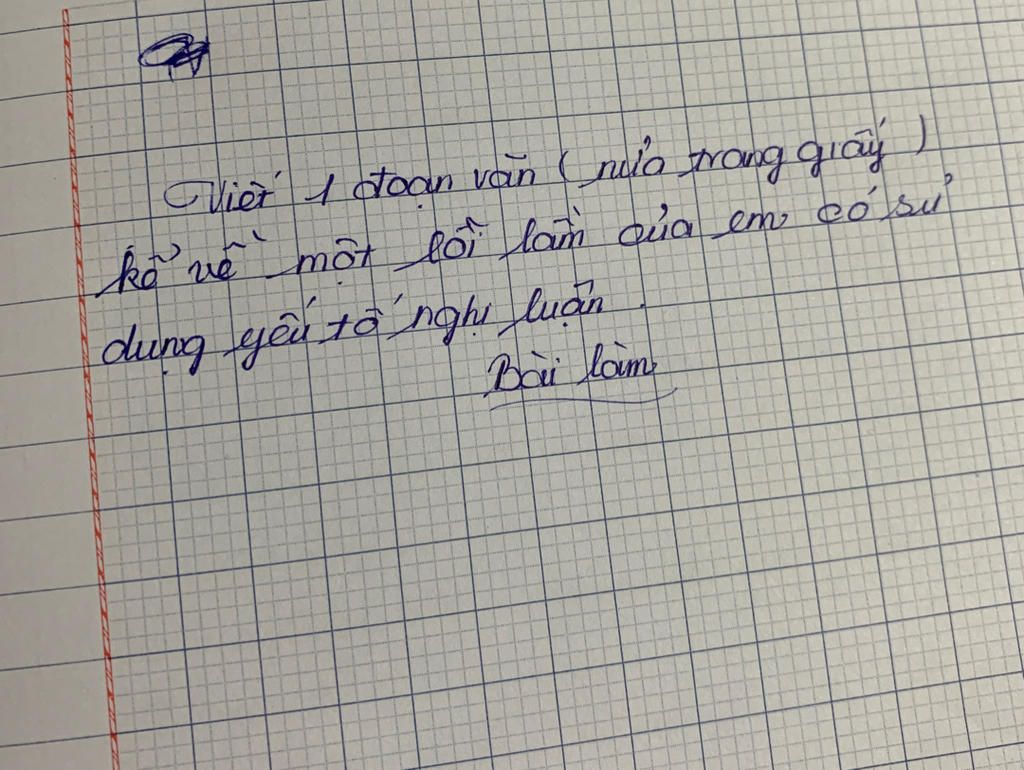 Viết 1 đoạn văn ( nửa trang giấy )
kể về một lỗi lầm của em có sử
dụng yếu tố nghị luận.
Bài làm